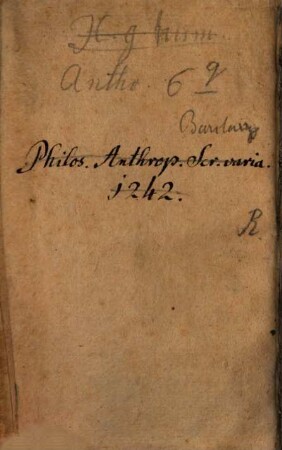 H. g hum.
Antho. 6 q
Philos. Anthrop. Scr. varia.
1242.
R.